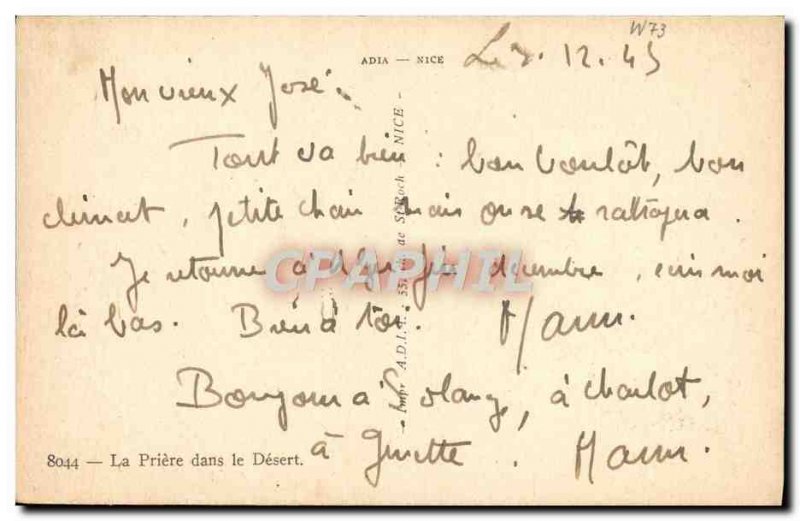 W73
ADIA — NICE
Le 12.45
Mon vieux José.
Tout va bien : bon boulôt, bon
climat, petite chair mais on se rattrapera.
Je retourne à Alger fin décembre, écris moi
là bas. Bien à toi.
Bonjour à Solange, à Charlot,
à Ginette.
8044 — La Prière dans le Désert.
Impr A.D.I.A. de St Roch - NICE -
CPAPHIL